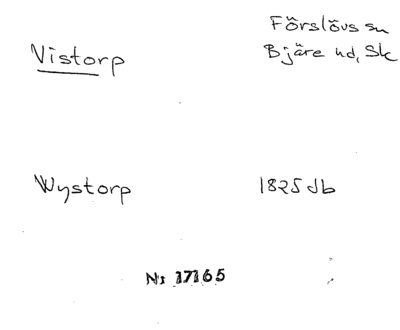 Vistorp
Förslövs sn
Bjäre hd, Sk
Wystorp
1825 db
N: 17165